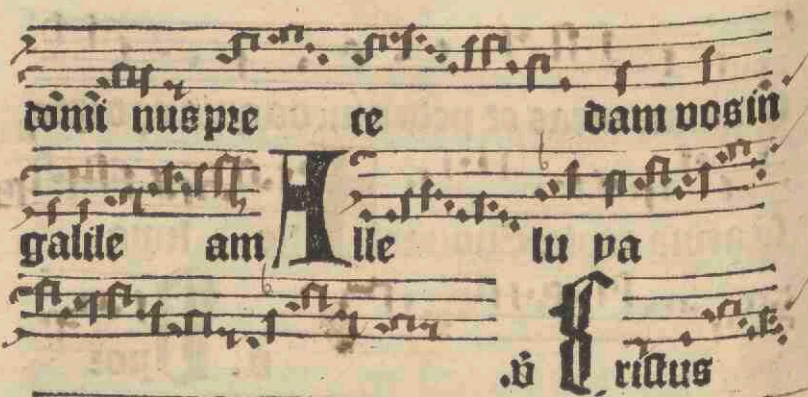 dominus pre ce dam vos in
galile am Alle lu ya
.v̄ Cristus